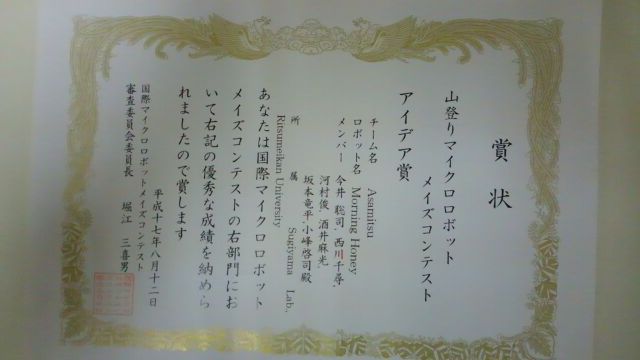 賞状
山登りマイクロロボット
メイズコンテスト
アイデア賞
チーム名 Asamitsu
ロボット名 Morning Honey
メンバー 今井 聡司, 西川千尋,
河村俊, 酒井麻光,
坂本竜平, 小峰啓司殿
所属 Sugiyama Lab,
Ritsumeikan University
あなたは国際マイクロロボット
メイズコンテストの右部門にお
いて右記の優秀な成績を納めら
れましたので賞します
平成十七年八月十二日
国際マイクロロボットメイズコンテスト
審査委員会委員長 堀江 三喜男